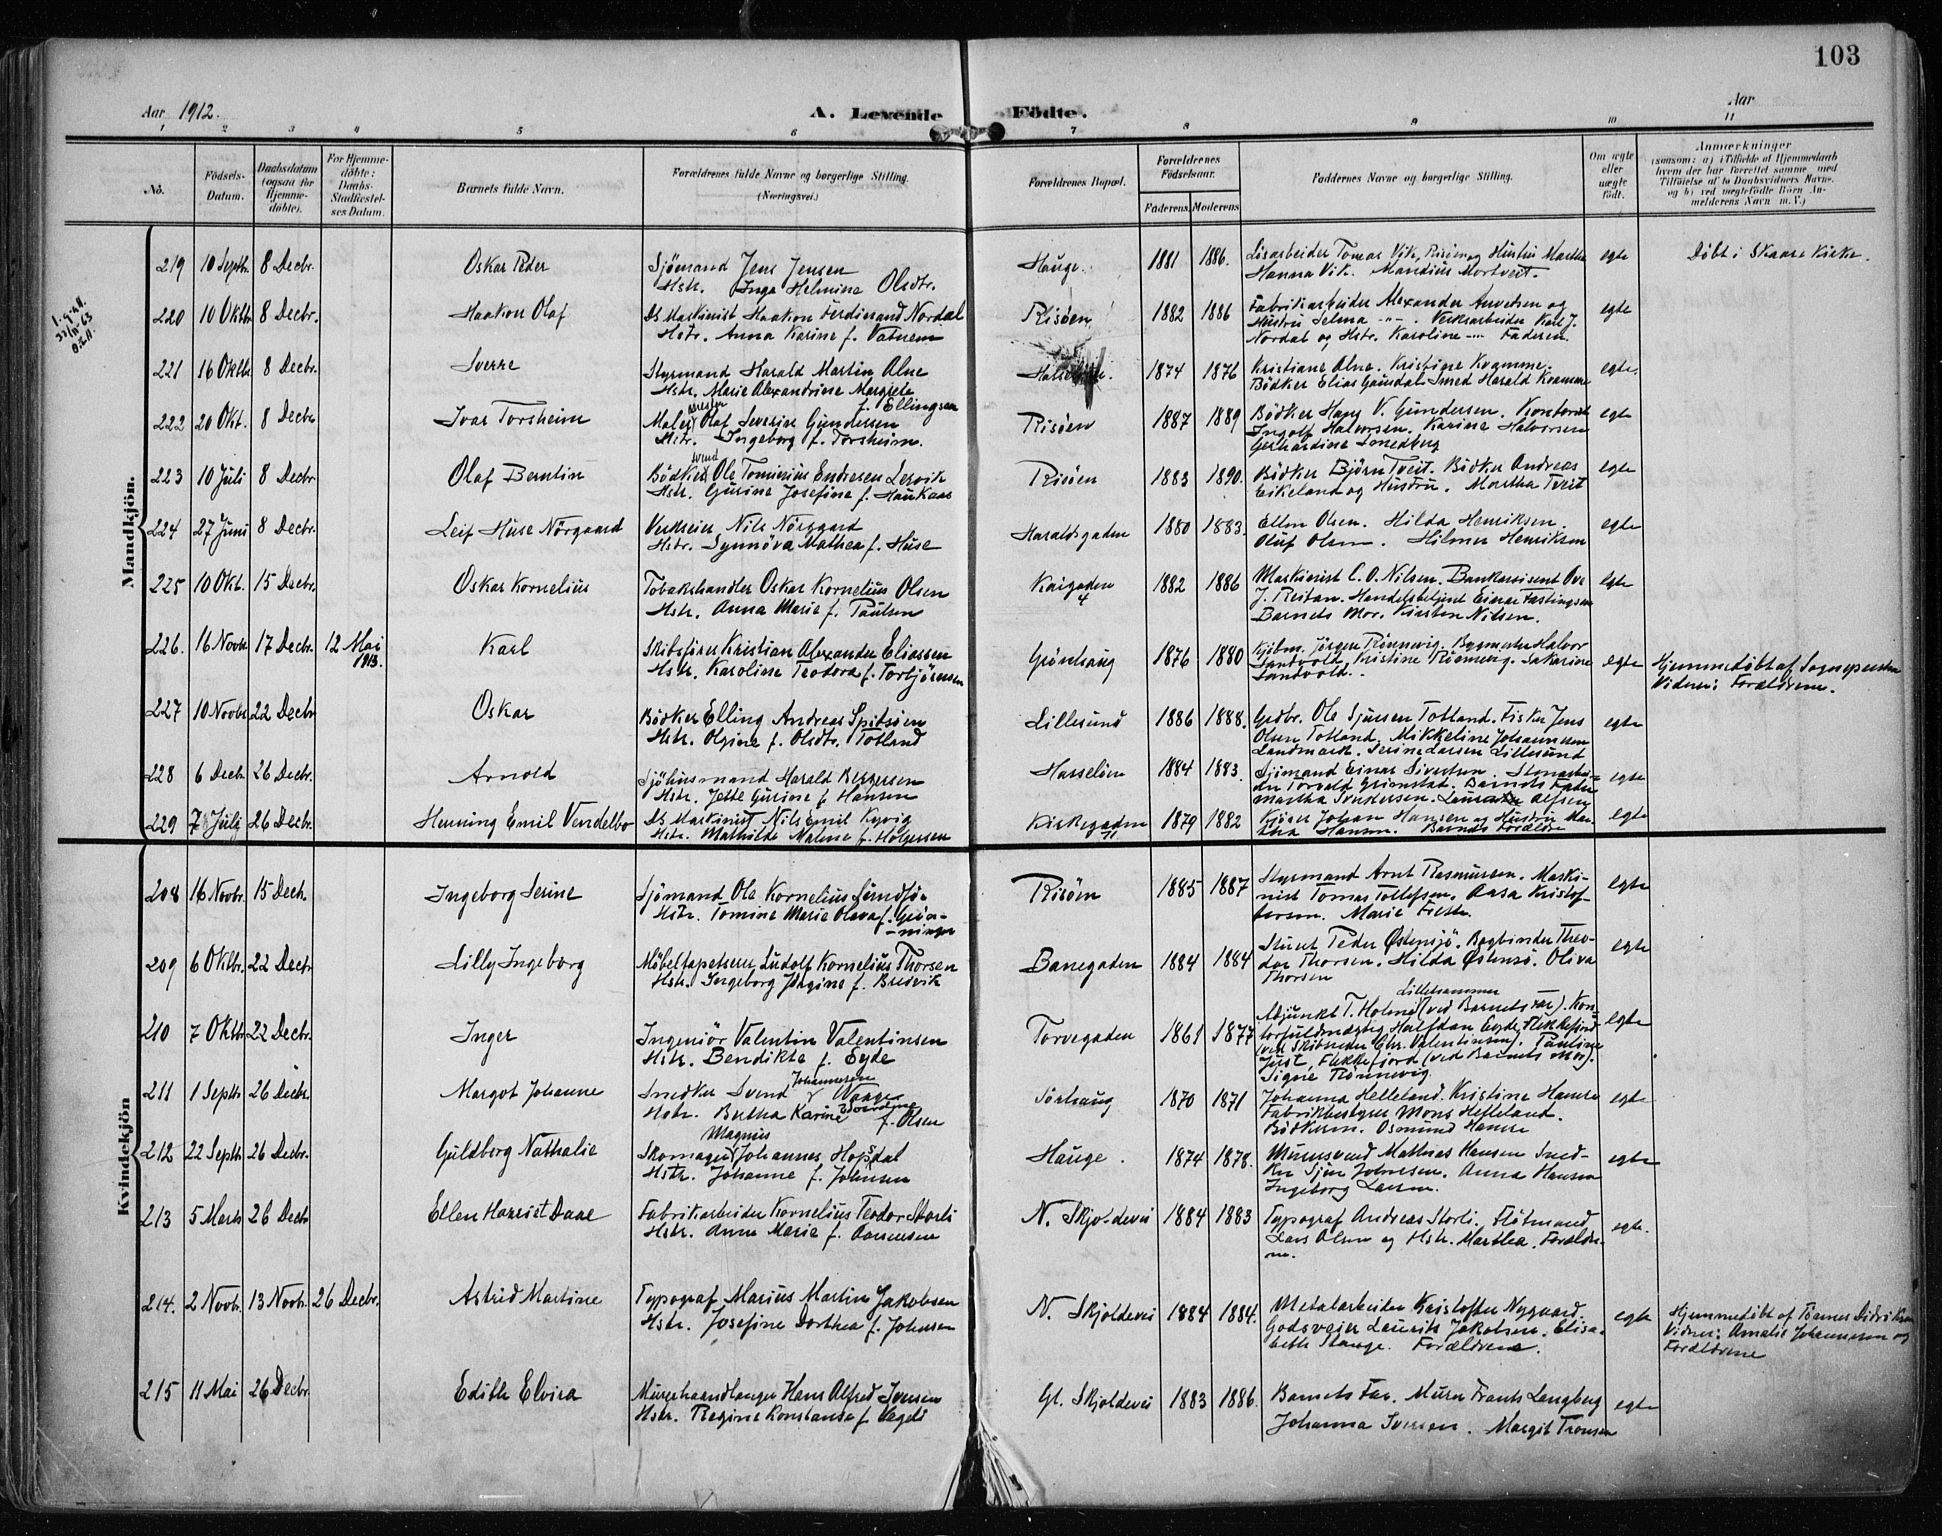 103
Aar 1912.
A. Levende Födte.
Aar
1 2 3 4 5 6 7 8 9 10 11
No.
Födsels-
Datum.
Daabsdatum
(ogsaa for
Hjemme-
döbte).
For Hjemme-
döbte:
Daabs-
Stadfæstel-
ses Datum.
Barnets fulde Navn.
Forældrenes fulde Navne og borgerlige Stilling.
(Næringsvei.)
Forældrenes Bopæl.
Forældrenes
Födselsaar.
Faderens Moderens
Faddernes Navne og borgerlige Stilling.
Om ægte
eller
uægte
født.
Anmærkninger
(saasom: a) i Tilfælde af Hjemmedaab
hvem der har forrettet samme med
Tilföielse af to Daabsvidners Navne.
og b) ved uægtefödte Börn An-
melderens Navn m. V.)
Mandkjön.
219 10 Septb. 8 Decbr. Oskar Peder
Sjömand Jens Jensen
Hstr. Inga Helmine Olsdtr.
Hauge. 1881 1886.
Løsarbeider Tomas Vik, Risöen og Hustru Martha
Hanna Vik. Mandius Mortveit.
egte
Döbt i Skaare Kirke.
220 10 Oktbr. 8 Decbr. Haakon Olaf
Ds. Maskinist Haakon Ferdinand Nordal
Hstr. Anna Karine f. Vatnem
Risöen 1882 1886
Fabrikarbeider Alexander Anvetsen og
Hustru Selma -"-. Verksarbeider Karl J.
Nordal og Hstr. Karoline -"- Faderen.
egte
221 16 Oktbr. 8 Decbr. Sverre
Styrmand Harald Martin Alne
Hstr. Marie Alexandrine Margrete
f. Ellingsen
Hasselöen. 1874 1876
Kristiane Alne. Kristine Kvamme.
Bödker Elias Gausdal. Smed Harald Kvamme
egte.
222 20 Okt. 8 Decbr. Ivar Torsheim
Malermester Olaf Severin Gundersen
Hstr. Ingeborg f. Torsheim.
Risöen 1887 1889
Bödker Hans V. Gundersen. Kontorist
Ingolf Halvorsen. Karine Halvorsen
Gerhardine Smedberg
egte
223 10 Juli 8 Decbr. Olaf Berntin
Bödkersvend Ole Tominius Endresen Lervik
Hstr. Gurine Josefine f. Haukaas
Risöen 1883 1890.
Bödker Björn Tveit. Bödker Andreas
Eikeland og Hustru. Martha Tveit
egte
224 27 Juni 8 Decbr. Leif Huse Nörgaard
Verkseier Nils Nörggard
Hstr. Synnöva Mathea f. Huse
Haraldsgaden 1880 1883.
Ellen Olsen. Hilda Henriksen.
Oluf Olsen. Hilmer Henriksen
egte
225 10 Okt. 15 Decbr. Oskar Kornelius
Tobakshandler Oskar Kornelius Olsen
Hstr. Anna Marie f. Paulsen
Kaigaden
4
1882 1886
Maskinist C. O. Nilsen. Bankassistent Ove
J. Reitan. Handelsbetjent Einar Fastingsen
Barnets Mor. Kirsten Nilsen.
egte
226. 16 Novbr. 17 Decbr. 12 Mai
1913.
Karl
Skibsförer Kristian Alexander Eliassen
Hstr. Karoline Teodora f. Torbjörnsen
Grönhaug 1876 1880
Kjöbm. Jörgen Rönnevig. Bygmester Halvor
Sandvold, Kristine Rönnevig. Sakarine
Sandvold.
egte
Hjemmedöbt af Sognepresten
Vidner: Forældrene.
227 10 Novbr. 22 Decbr. Oskar
Bödker Elling Andreas Spitsöen
Hstr. Olgine f. Olsdtr. Totland
Lillesund 1886 1888.
Grdbr. Ole Sjursen Totland. Fisker Jens
Olsen Totland. Mikkeline Johannesen
Landmark. Serine Larsen Lillesund
egte
228 6 Decb. 26 Decbr. Arnold
Sjöhusmand Harald Bergersen
Hstr. Jette Gurine f. Hansen
Hasselöen 1884 1883.
Sjömand Einar Sivertsen. Stenarbei-
der Torvald Grimstad. Barnets Fader
Martha Syndersen. Alfsen
egte
229 7 Julj 26 Decbr. Henning Emil Vendelbo
Ds. Maskinist Nils Emil Kyvig
Hstr. Mathilde Malene f. Holgersen
Kirkegaden
11
1879 1882
Kjører Johan Hansen og Hustru Mar-
tha Hansen. Barnets Forældre
egte
Kvindekjön
208 16 Novbr. 15 Decb. Ingeborg Serine
Sjömand Ole Kornelius Sundför
Hstr. Tomine Marie Olava f. Grön-
-ninger
Risöen 1885 1887
Styrmand Arnt Rasmussen. Maski-
nist Tomas Tollefsen. Aasa Kristof-
fersen. Marie
egte
209 6 Oktbr. 22 Decbr. Lilly Ingeborg
Möbeltapetserer Ludolf Kornelius Thorsen
Hstr. Ingeborg Jörgine f. Bredvik
Banegaden 1884 1884
Stuert Peder Østensjö. Bogbinder Theo-
dor Thorsen. Hilda Østensö. Oliva
Thorsen
egte
210 7 Oktbr. 22 Decbr. Inger
Ingeniör Valentin Valentinsen
Hstr. Bendikte f. Eyde
Torvegaden 1861 1877
Lillehammer
Adjunkt T. Holme (ved Barnets Far). Kon-
torfuldmægtig Halfdan Eyde, Flekkefjord
(ved Skibsreder Chr. Valentinsen). Pauline
Just, Flekkefjord (ved Barnets Mor).
Signe Rönnevig.
egte
211 1 Septb. 26 Decbr. Margot Johanne
Snedker Svend Johannesen Waage
Hstr. Bertha Karine f. Olsen
Sörhaug 1870 1871
Johanna Helleland. Kristine Hamre
Fabrikbestyrer Mons Helleland.
Bödkerm. Osmund Hamre
egte
212 22 Septb. 26 Decbr. Guldborg Nathalie
Magnus
Skomager Johannes Hopsdal
Hstr. Johanne f. Johnsen
Hauge. 1874 1878.
Murersvend Mathias Hansen Sned-
ker Sjur Johnesen. Anna Hansen
Ingeborg Larsen.
egte
213 5 Marts 26 Decbr. Ellen Harriet Daae
Fabrikarbeider Kornelius Teodor Storli
Hstr. Anne Marie f. Aanensen
N. Skjoldevei 1884 1883
Typograf Andreas Storli. Fløtmand
Lars Olsen og Hstr. Marthea. Forældre-
ne.
egte.
214. 2 Novbr. 13 Novbr. 26 Decbr. Astrid Martine
Typograf Marius Martin Jakobsen
Hstr. Josefine Dorthea f. Johnsen
N. Skjoldevei 1884 1884.
Metalarbeider Kristoffer Nygaard
Godseier Laurits Jakobsen. Elisa-
beth Stange. Forældrene.
egte
Hjemmedöbt af Tomes Didriksen
Vidner: Amalie Johannesen og
Forældrene
215 11 Mai 26 Decbr. Edith Elvira
Murerhaandlanger Hans Alfred Jensen
Hstr. Regine Konstanse f. Vageli
Gl. Skjoldevei 1883 1886.
Barnets Far. Murer Frants Langberg
Johanna Iversen. Margit Tronsen
egte